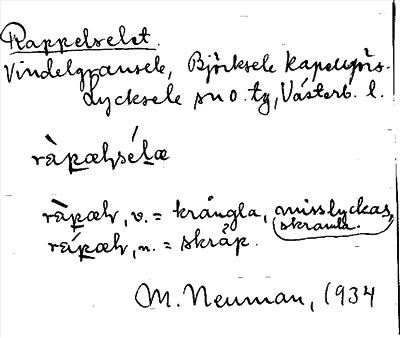 Rappelselet.
Vindelgransele, Björksele kapellförs.
Lycksele sn o. tg, Västerb. l.
ràpæɫsélæ
ràpæɫ, v. = krångla, misslyckas,
skramla.
rápæɫ, n. = skråp.
M. Neuman, 1934